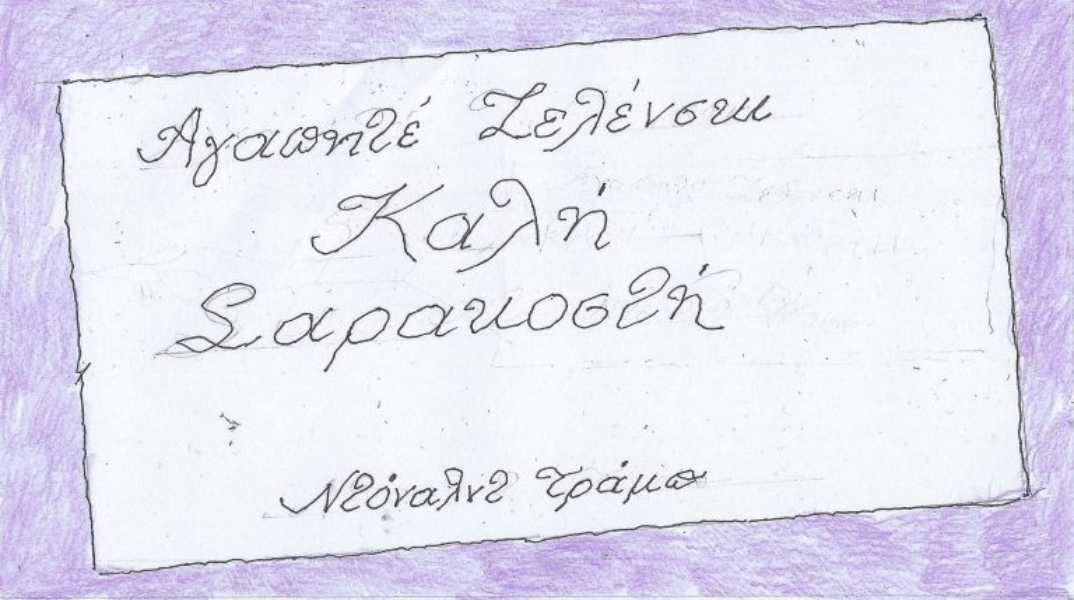 Αγαπητέ Ζελένσκι
Καλή
Σαρακοστή
Ντόναλντ Τραμπ